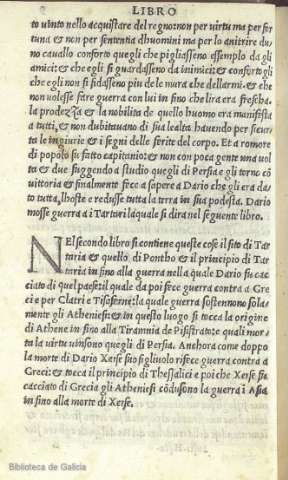 LIBRO
to uinto nello acquistare del regno: non per uirtu ma per for
tuna & non per sententia dhuomini ma per lo anitrire du
no cauallo conforto quegli che pigliasseno essempio da gli
amici: & che egli si guardasseno da inimici: & conforto gli
che egli non si fidasseno piu de le mura che dellarmi. & che
non uolesse fare guerra con lui in fino che lira era frescha.
la prodezza & la nobilita de quello huomo era manifista
a tutti, & non dubitauano di sua lealta hauendo per sicur
ta le ingiurie & i segni delle ferite del corpo. Et a romore
di popolo fu fatto capitanio: & non con poca gente una uol
ta & due suggendo a studio quegli di Persia egli torno cō
uittoria & finalmente fece a sapere a Dario che gli era da
to tutta lhoste e redusse tutta la terra in sua podesta. Dario
mosse guerra a i Tartari laquale si dira nel seguente libro.
NEl secondo libro si contiene queste cose il sito di Tar
taria & quello di Pontho & il principio di Tar
teria in fino alla guerra nella quale Dario fu cac
ciato di quel paese: il quale da poi fece guerra contra a Gre
ci e per Clatri e Tisoferne: la quale guerra sostennono sola-
mente gli Atheniesi: & in questo luogo si tocca la origine
di Athene in fino alla Tiramnia de Pisistrato: e quali mor
ta la uirtu uinsono quegli di Persia. Anchora come doppo
la morte di Dario Xerse suo figliuolo rifece guerra contra a
Greci: & tocca il principio di Thessalici e poi che Xerse fu
cacciato di Grecia gli Atheniesi cōdusono la guerra i Asia
in sino alla morte di Xerse.
Biblioteca de Galicia